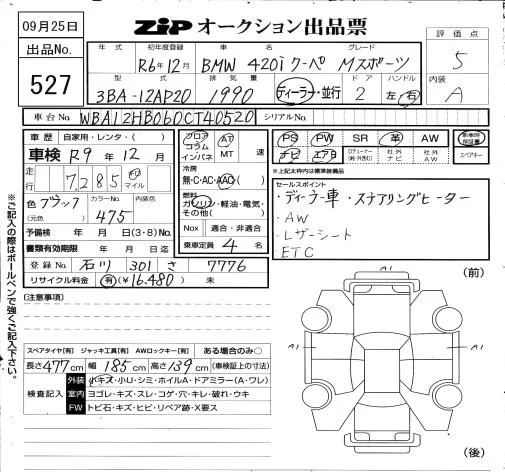 09月25日
ZiP オークション出品票
出品No.
527
評価点
5
内装
A
年式 初年度登録 車名 グレード
R6年12月 BMW 420i クーペ Mスポーツ
型式 排気量 ドア ハンドル
3BA-12AP20 1990 ディーラー・並行 2 左・右
車台No. WBA12HB060CT40520 シリアルNo.
車歴 自家用・レンタ・( )
車検 R9年12月
走行 7,285 km マイル
色 ブラック カラーNo. 内装色
(元色) 475
予備検 年 月 日(3・8)No.
書類有効期限 年 月 日迄
登録No. 石川 301 さ 7776
リサイクル料金 有(¥16,480) 未
フロア AT
コラム
インパネ MT 速
冷房
無・C・AC・AAC
燃料
ガソリン・軽油・電気・
その他( )
Nox 適合・非適合
乗車定員 4 名
PS PW SR 革 AW 新車時保証書
ナビ エアB 社外ナビ 社外AW スペアキー
*上記太枠内は標準装備品
セールスポイント
・ディーラー車・ステアリングヒーター
・AW
・レザーシート
・ETC
(注意事項)
スペアタイヤ[有] ジャッキ工具[有] AWロックキー[有] ある場合のみ○
長さ477cm 幅185cm 高さ139cm (車検証上の寸法)
検査記入
外装 小キズ・小U・シミ・ホイルA・ドアミラー(A・ワレ)
室内 ヨゴレ・キズ・スレ・コゲ・穴・キレ・破れ・ウキ
FW トビ石・キズ・ヒビ・リペア跡・X要ス
(前)
A1
A1
A1
(後)
※ご記入の際はボールペンで強くご記入下さい。